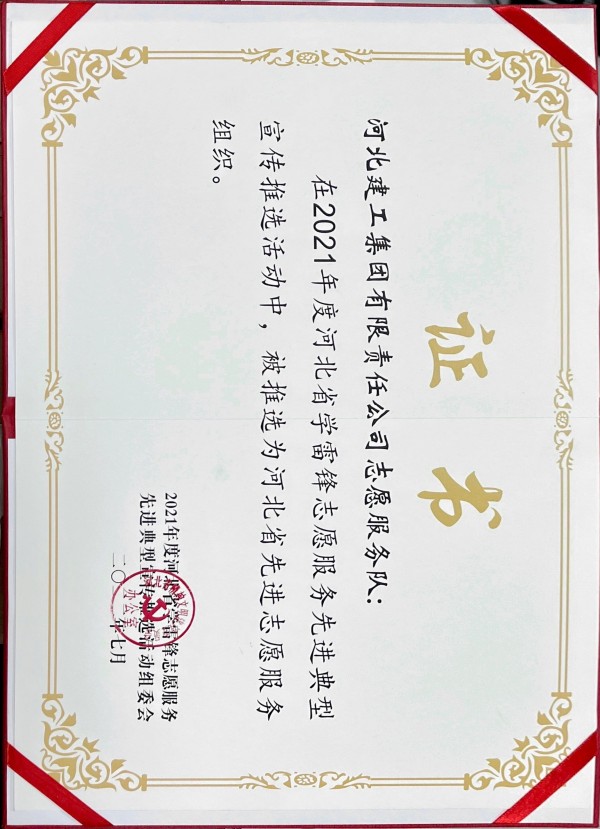 证书
河北建工集团有限责任公司志愿服务队：
在2021年度河北省学雷锋志愿服务先进典型
宣传推选活动中，被推选为河北省先进志愿服务
组织。
2021年度河北省学雷锋志愿服务
先进典型宣传推选活动组委会
二〇 年七月
办公室